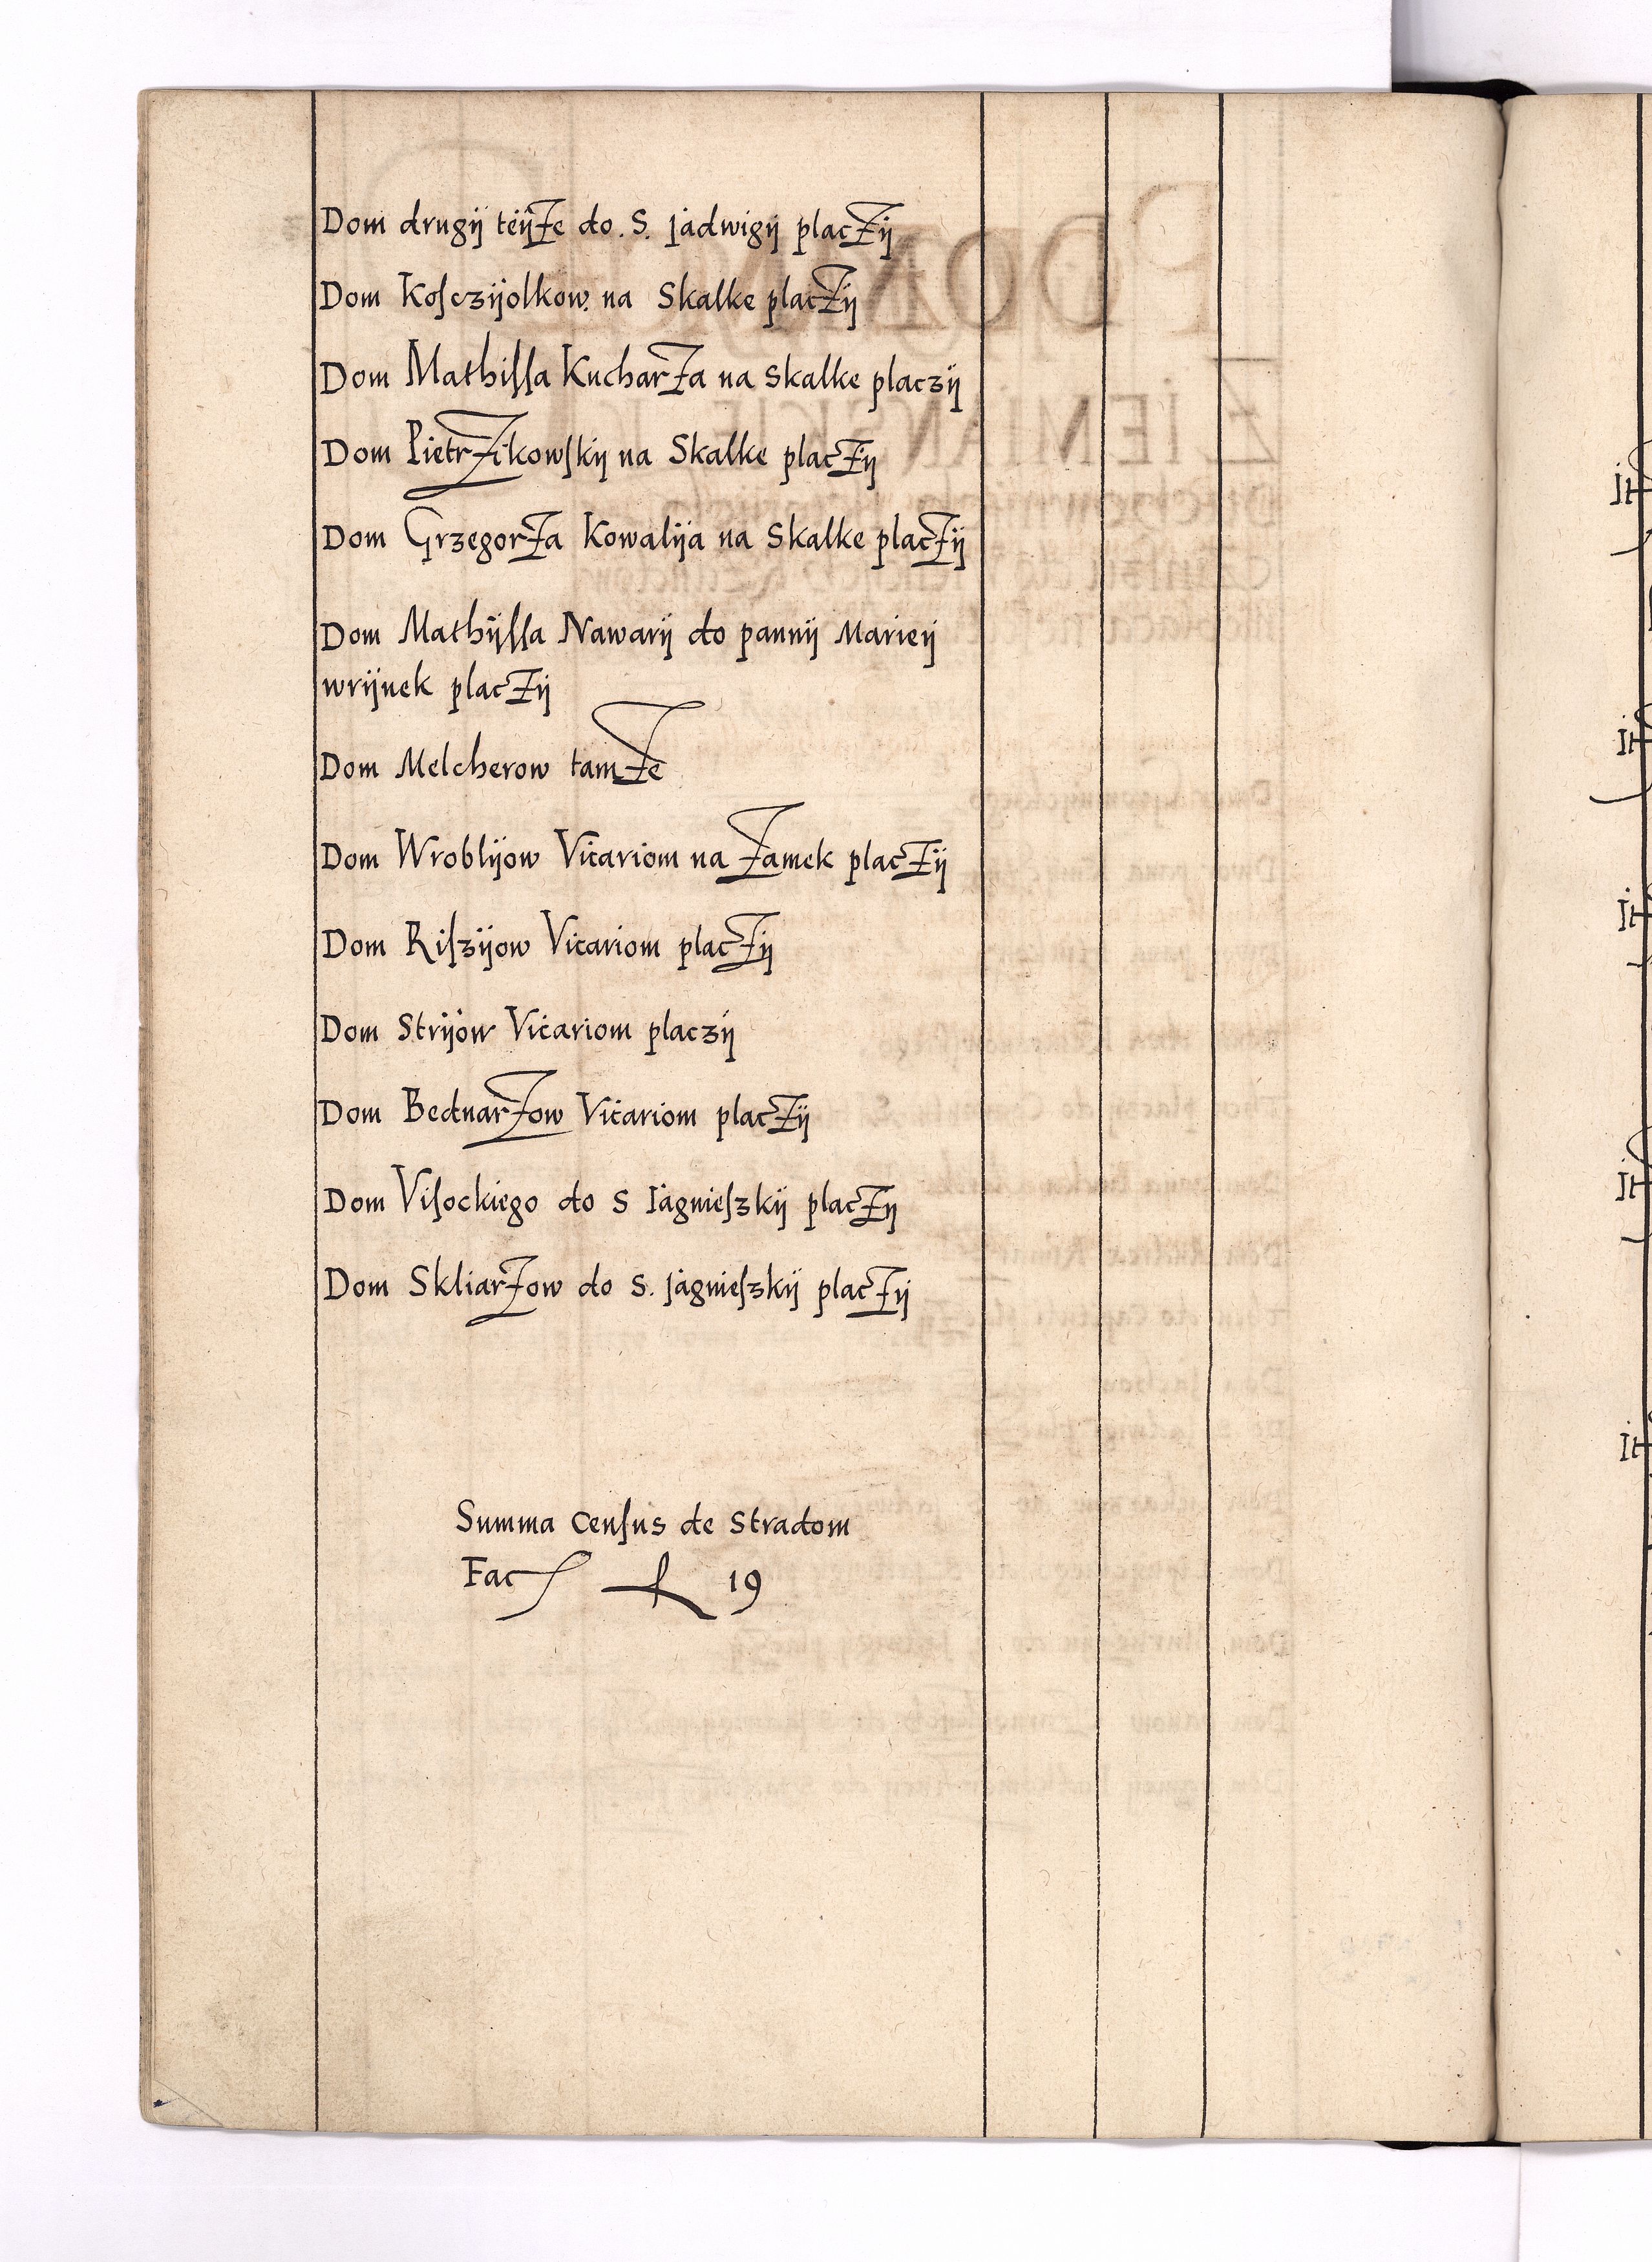 Dom drugij teijże do. S. jadwigij placżij
Dom Koſczijolkow. na Skalke placżij
Dom Mathiſſa Kucharża na Skalke placzij
Dom Pietrżikowſkij na Skalke placżij
Dom Grzegorża Kowalija na Skalke placżij
Dom Mathijſſa Nawarij do pannij Mariej
wrijnek placżij
Dom Melcherow tamże
Dom Wroblijow Vicariom na żamek placżij
Dom Riſzijow Vicariom placżij
Dom Strijow Vicariom placzij
Dom Bednarżow Vicariom placżij
Dom Viſockiego do S Jagnieſzkij placżij
Dom Skliarżow do S. jagnieſzkij placżij
Summa Cenſus de Stradom
Fac 19